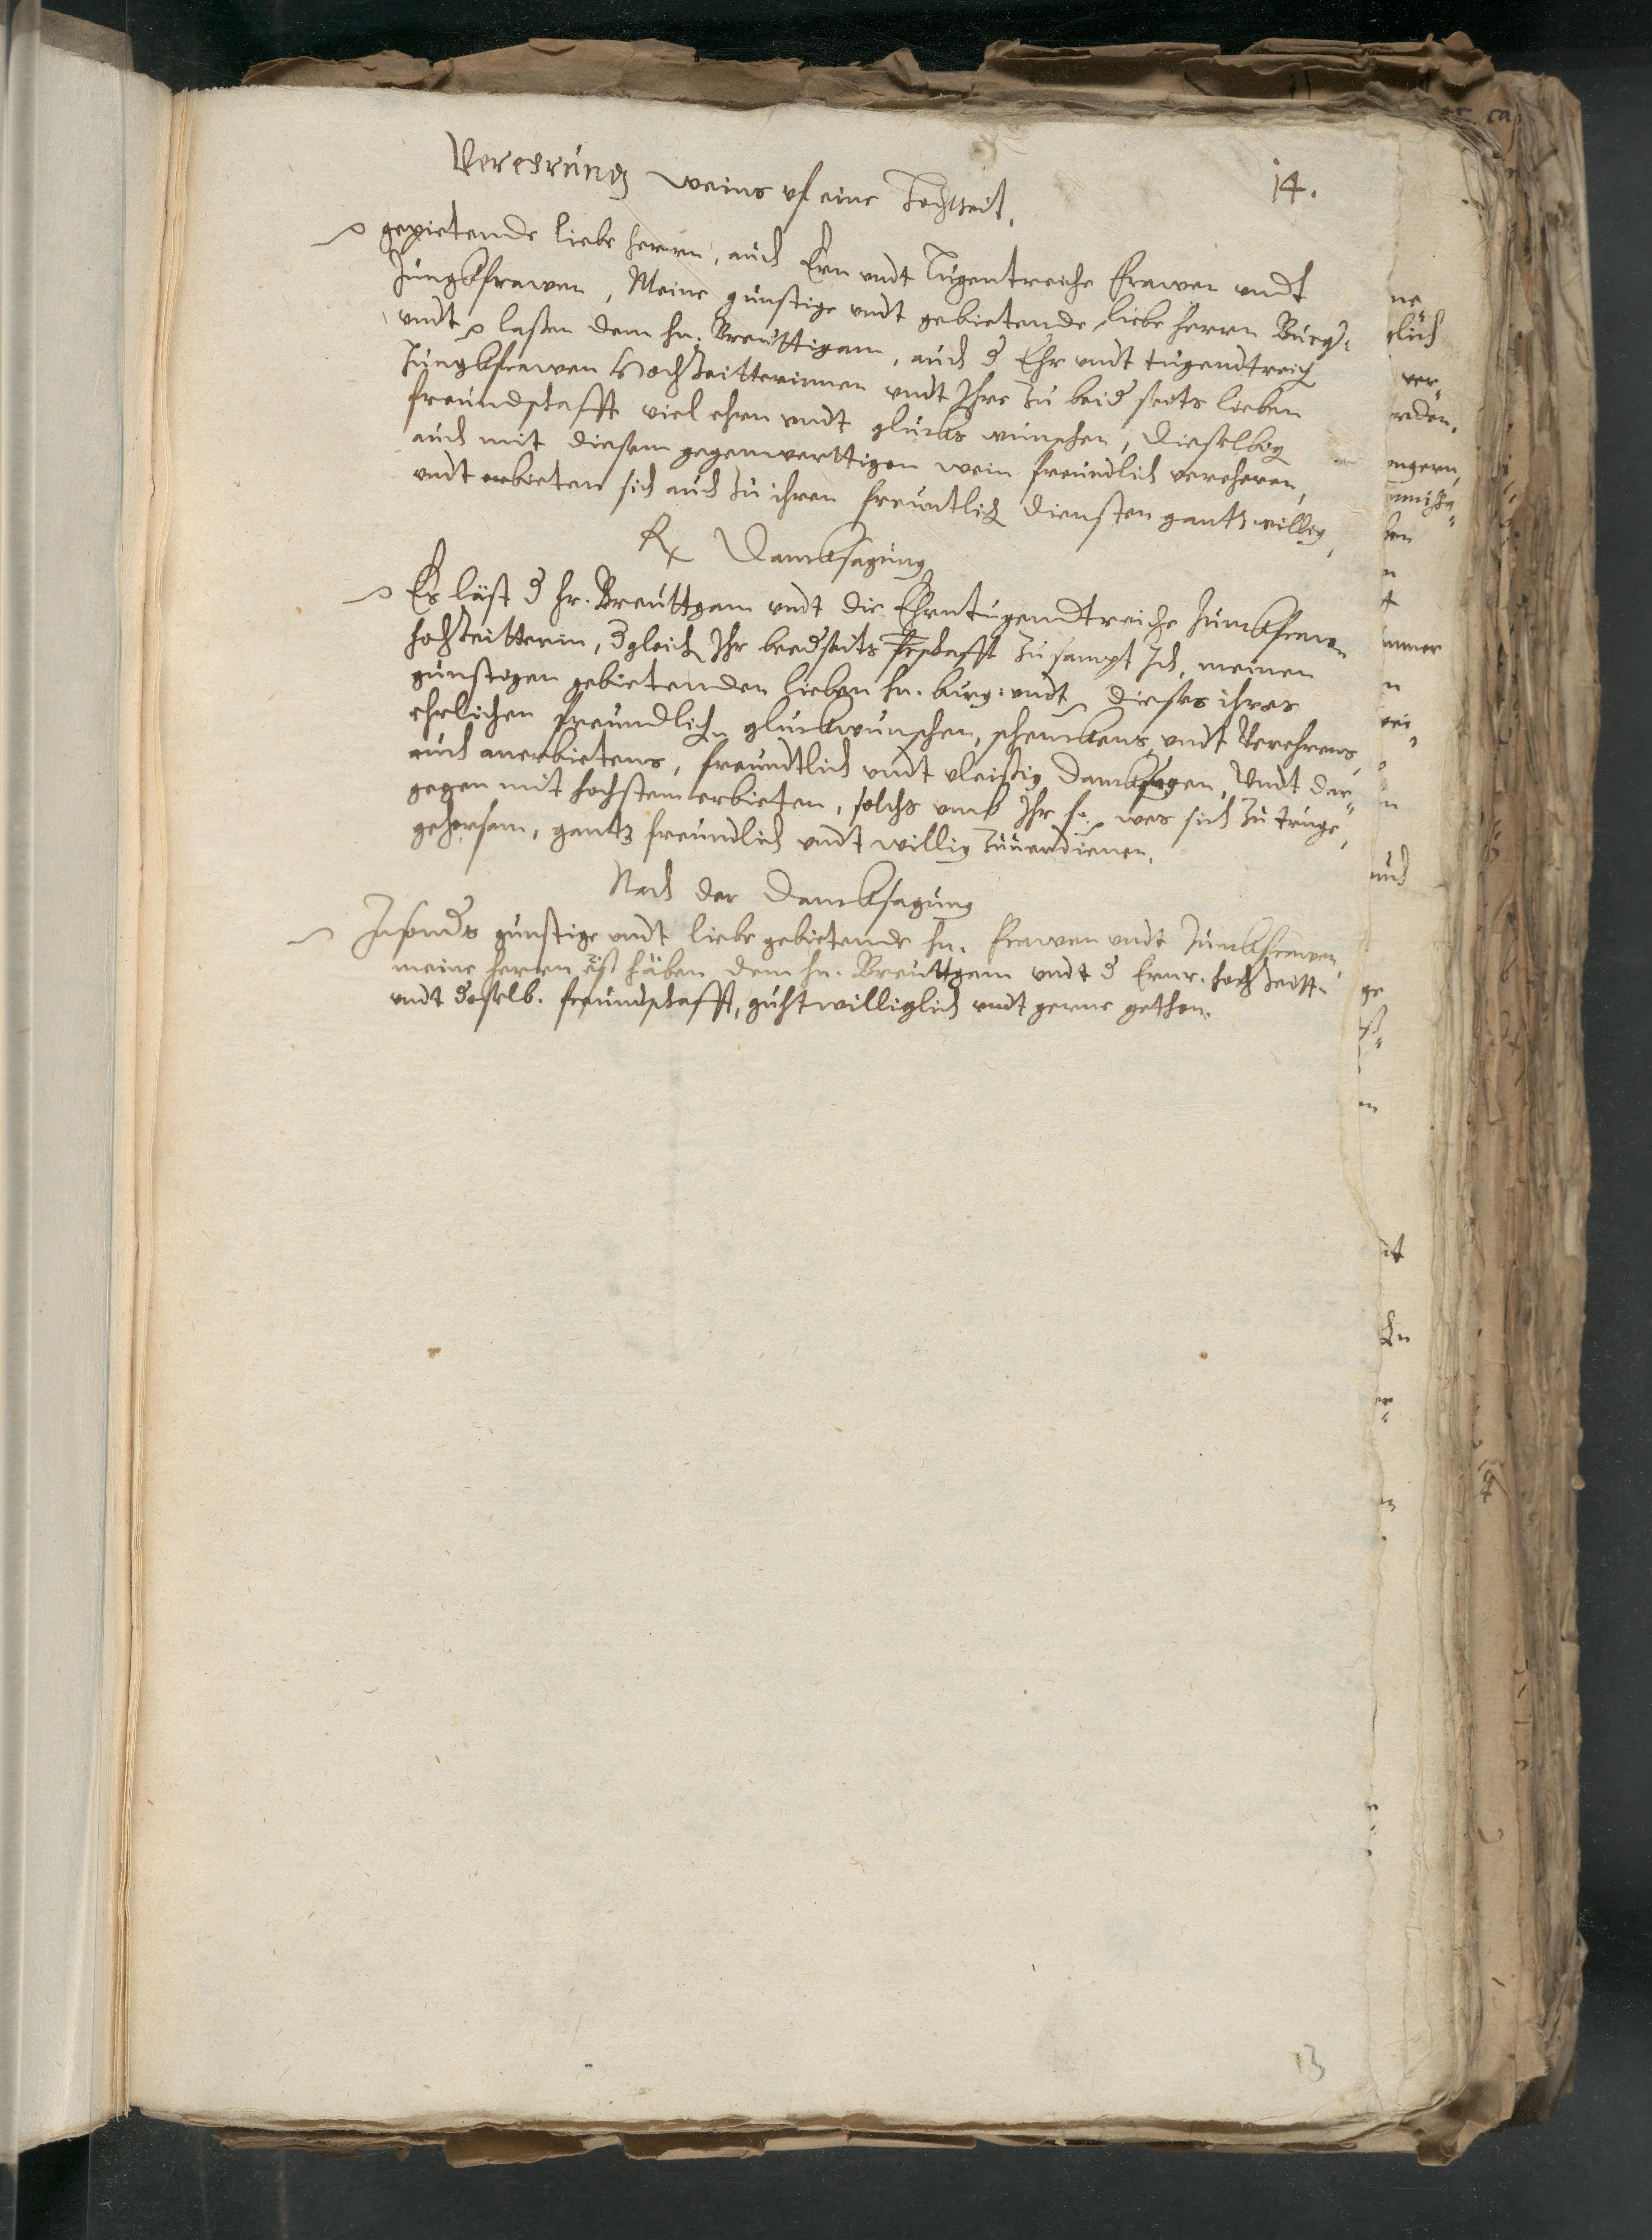 14.
Verehrung weins vf eine Hochtzeit.
gepietende liebe herrn, auch Ern vndt Tugentreiche frawen vndt
Jungkfrawen, Meine günstige vndt gebietende liebe herrn Burg:
vndt laßen dem hn. Breuttigam, auch d Ehr vndt tugendtreich
Jungkfrawen Hochtzeitterinnen vndt Ihre zu beid seits lieben
freundschafft viel ehren vndt glücks wünschen, dieselbig
auch mit diesem gegenwerttigen wein freundlich verehren,
vndt erbieten sich auch zu ihren freuntlich diensten gantz willig,
Rx Dancksagung
Es läst d hr. Breuttgam vndt die Ehrntugendtreiche Junckfraw
hochzeitterin, dgleich Ihr beedseits frschafft zusampt Ich, meinen
günstigen gebietenden lieben hn. burg: vndt dieses ihres
ehrlichen freundlich glückwünschen, schenckens vndt Verehrens,
auch anerbietens, freundtlich vndt vleißig dancksagen, Vndt dar¬
gegen mit hochstem erbieten, solchs vmb Ihr h. wes sich zu truge,
gehorsam, gantz freundlich vndt willig zuuerdienen.
Nach der Dancksagung
Insonds günstige vndt liebe gebietende hn. frawen vndt Junckfrawen,
meine herren haben dem hn. Breuttgam vndt d Ernr. hochzeitt.
vndt doselb. freundschafft, guhtwilliglich vndt gerne gethon.
13